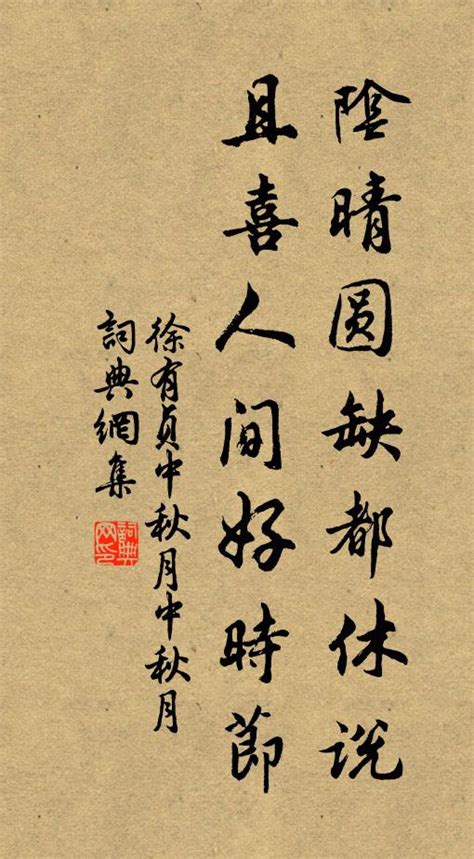 陰晴圆缺都休说
且喜人间好時節
徐有貞中秋月中秋月
詞典網集
詞典网印